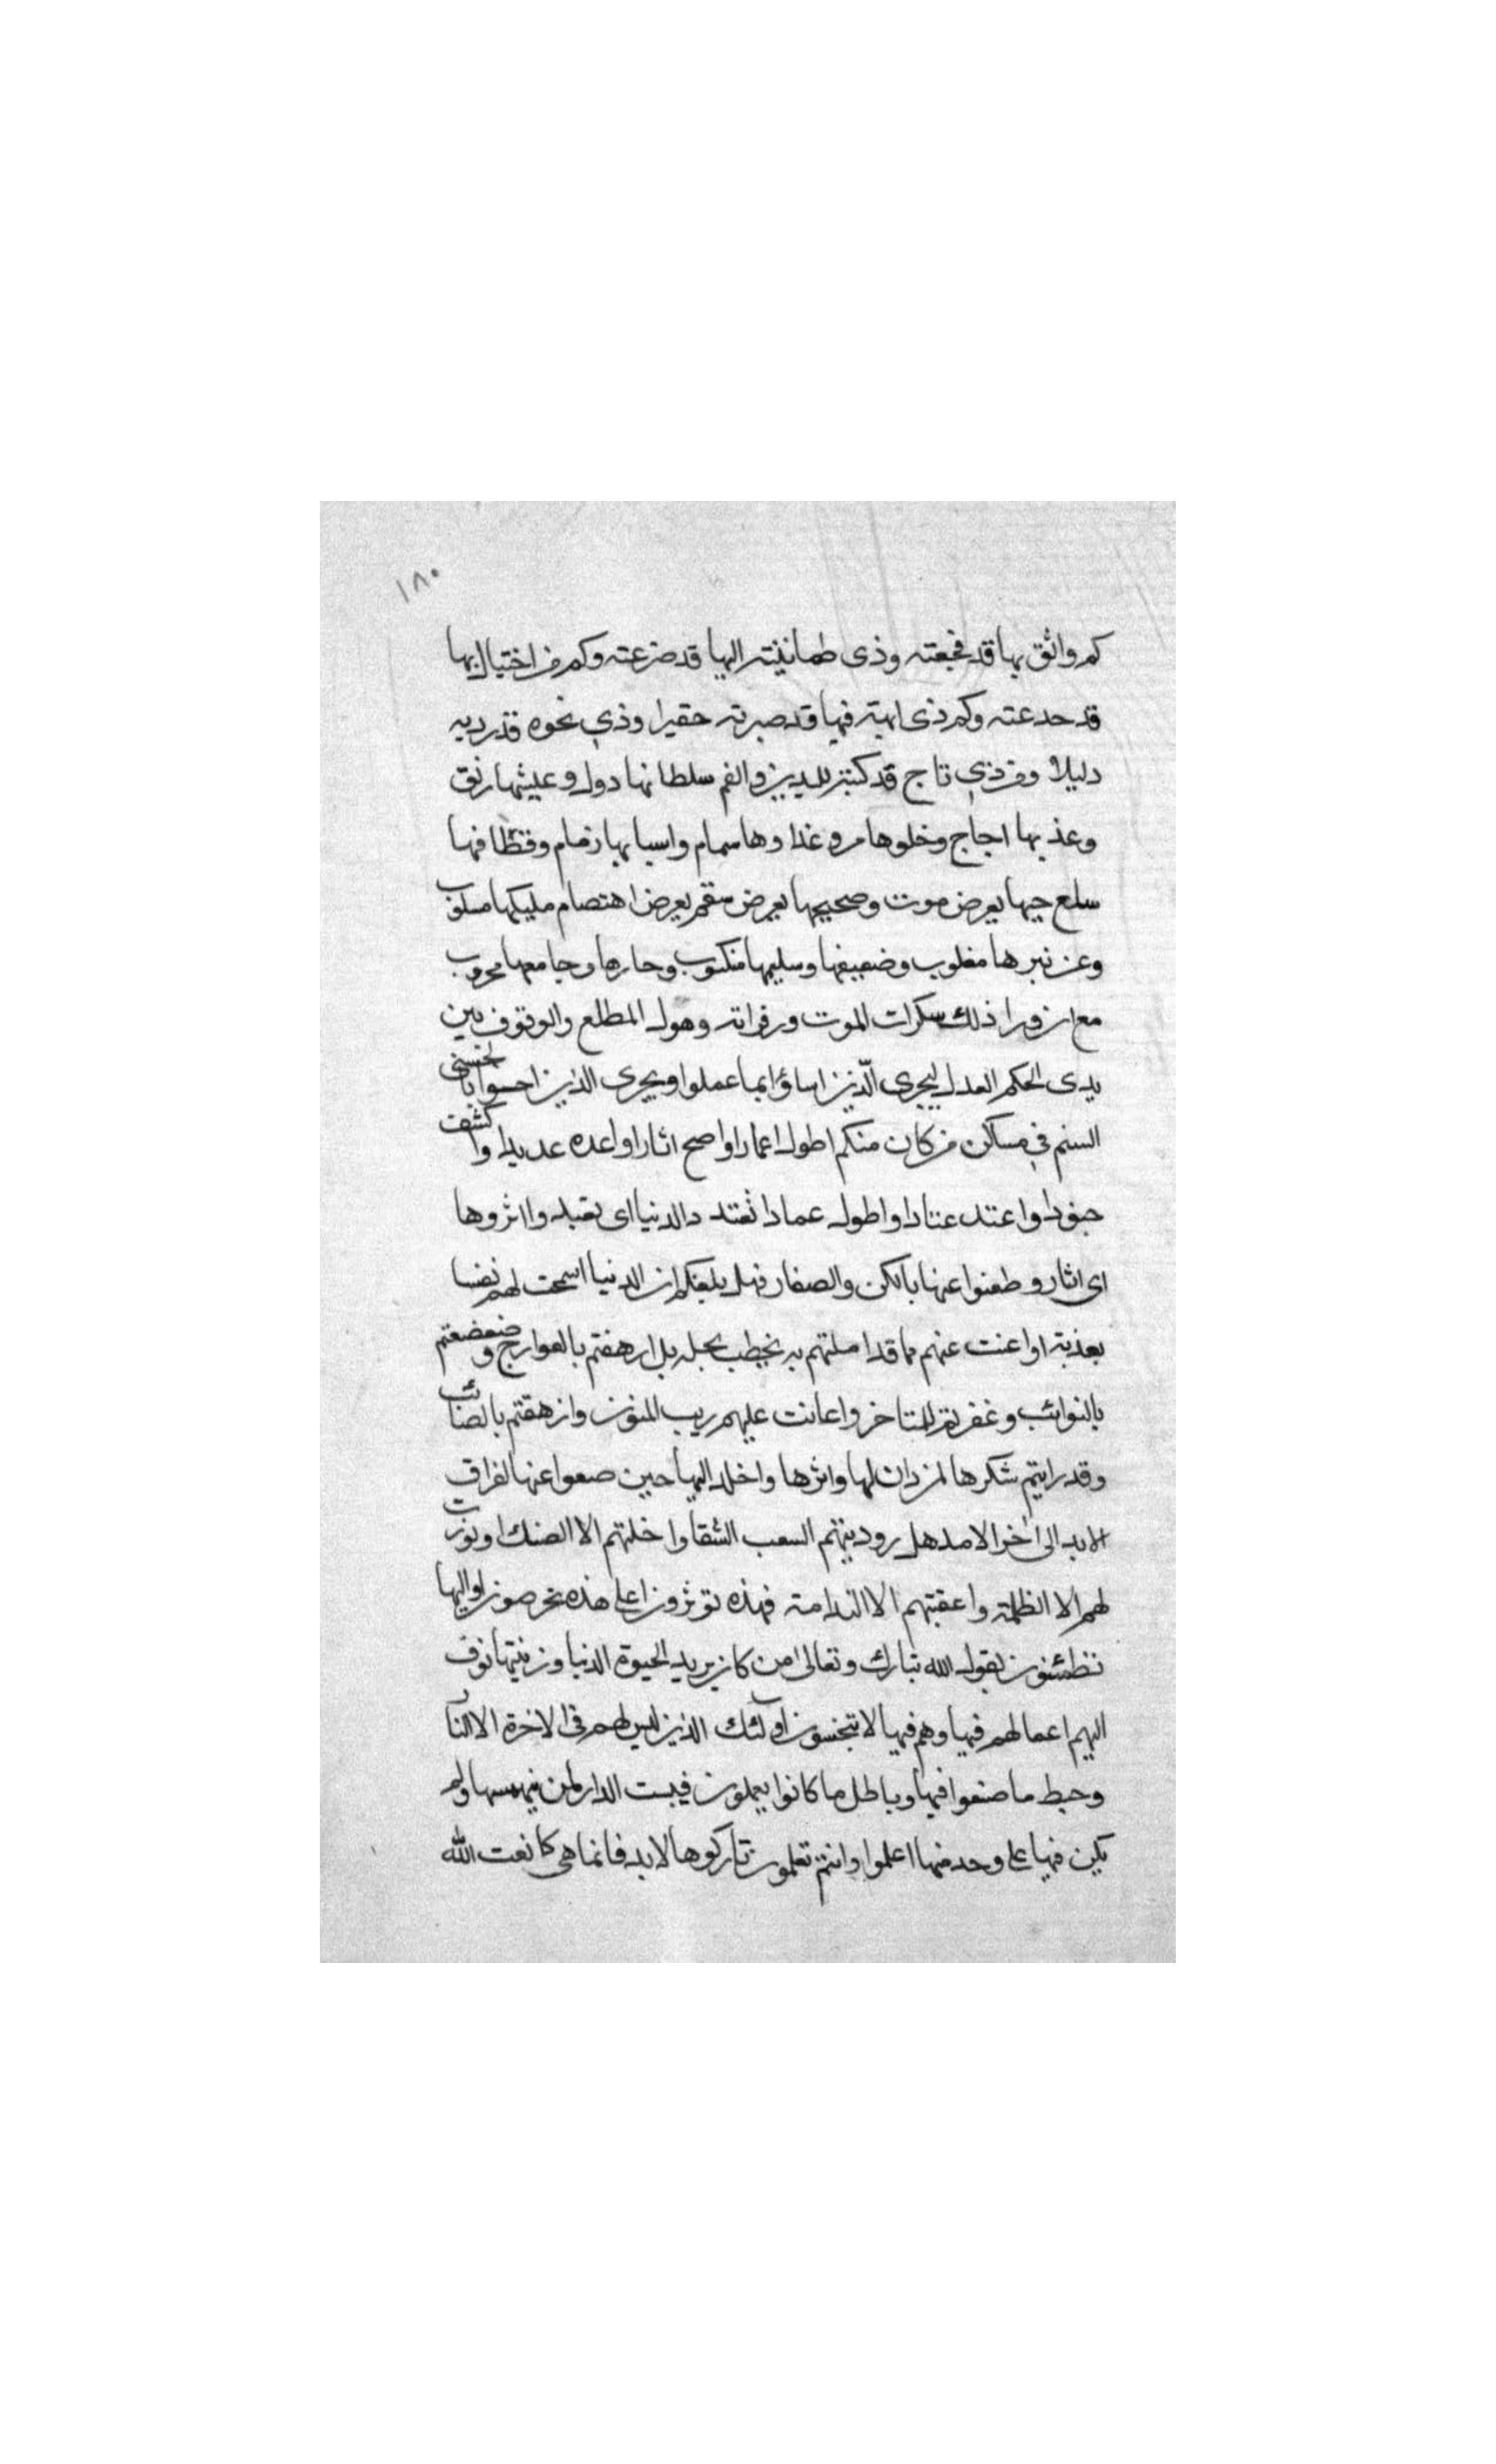 ١٨٠
كم واثق بها قد فجعته وذى طمانينته اليها قد صرعته وكم من اختيال بها
قد حدعته وكم ذى ابهته فيها قد صيرته حقيرا وذى نخوه قد رديه
دليلا ومن ذى تاج قد كبته لليدين والفم سلطانها دول وعيشها رنق
وعذبها اجاج وخلوها مر وغذاوها سمام واسبابها زمام وقطافها
سلع حيها بعرض موت وصحيحها بعرض سقم بعرض اهتصام مليكها مسلوب
وعزنيزها مغلوب وضعيفها وسليمها منكوب وحارها وجامعها محروب
مع ان ورا ذلك سكرات الموت وزفراته وهول المطلع والوقوف بين
يدى الحكم العدل ليجرى الّذين اساؤا بما عملوا ويجرى الذين احسنوا بالحسنى
السنم فى مساكن من كان منكم اطول اعمارا واصح اثارا واعده عديدا واكشف
جنودا واعتد عتادا واطول عمادا تعتد دالدنيا اى تعبد واثروها
اى اثار وطعنوا عنها بالكن والصغار فهل بلغكم ان الدنيا اسمحت لهم نفسا
بعذبته او اغنت عنهم مما قد املتهم به بخطب بحبله بل ارهفتم بالعوارج وضعضعتم
بالنوائب وغفرتم للمتاخر واعانت عليهم ريب المنون وازهقتم بالصنائب
وقد رايتم شكرها لمن دان لها واثرها واخلد اليها حين صعوا عنها لفراق
الابد الى اخر الامد هل رودينهم السعب الشقا واخلتهم الا الضنك او نورت
لهم الا الظلمة واعقبتهم الا الندامة فهذه توثرون اعلى هذه تحرصون او اليها
تطمئنون بقول الله تبارك وتعالى من كان يريد الحيوة الدنيا وزينتها نوف
اليهم اعمالهم فيها وهم فيها لا يبخسون اولئك الذين ليس لهم فى الاخرة الا النار
وحبط ما صنعوا فيها وباطل ما كانوا يعملون فبست الدار لمن يتهمسها ولم
يكن فيها على وحد منها اعلموا وانتم تعلمون تاركوها لابد فانما هى كا نعت الله